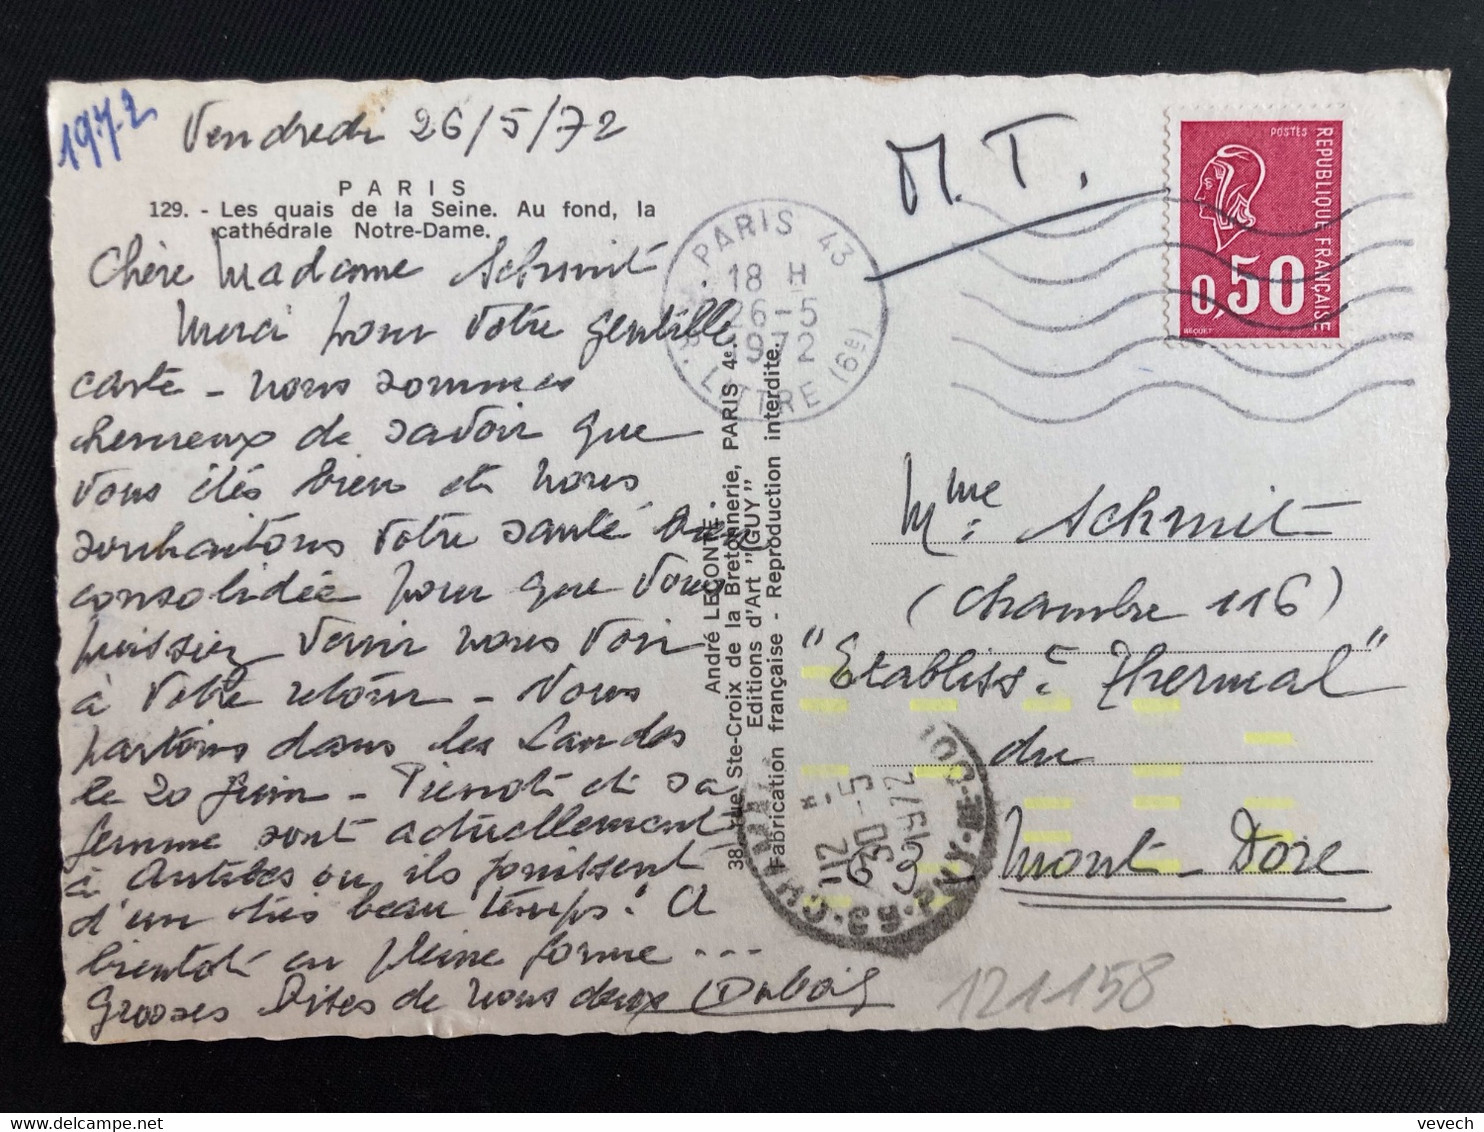 1972
Vendredi 26/5/72
PARIS
129. - Les quais de la Seine. Au fond, la
cathédrale Notre-Dame.
Chère Madame Schmit.
Merci pour votre gentille
carte - nous sommes
heureux de savoir que
vous êtes bien et nous
souhaitons votre santé bien
consolidée pour que vous
puissiez venir nous voir
à votre retour - Nous
partons dans les Landes
le 20 Juin - Pierrot et sa
femme sont actuellement
à Antibes ou ils jouissent
d'un très beau temps! A
bientôt en pleine forme ...
Grosses Bises de nous deux Dubois
André LECONTE.
38, rue Ste-Croix de la Bretonnerie, PARIS 4e.
Editions d'Art "GUY"
Fabrication française - Reproduction interdite.
M.T.
PARIS 43
18 H
26-5
1972
R. LITTRE (6e)
POSTES
REPUBLIQUE FRANÇAISE
0,50
BEQUET
Mme. Schmit
(Chambre 116)
"Etabliss.t Thermal"
du
Mont-Dore
12 H
30-5
1972
63
121158
vevech